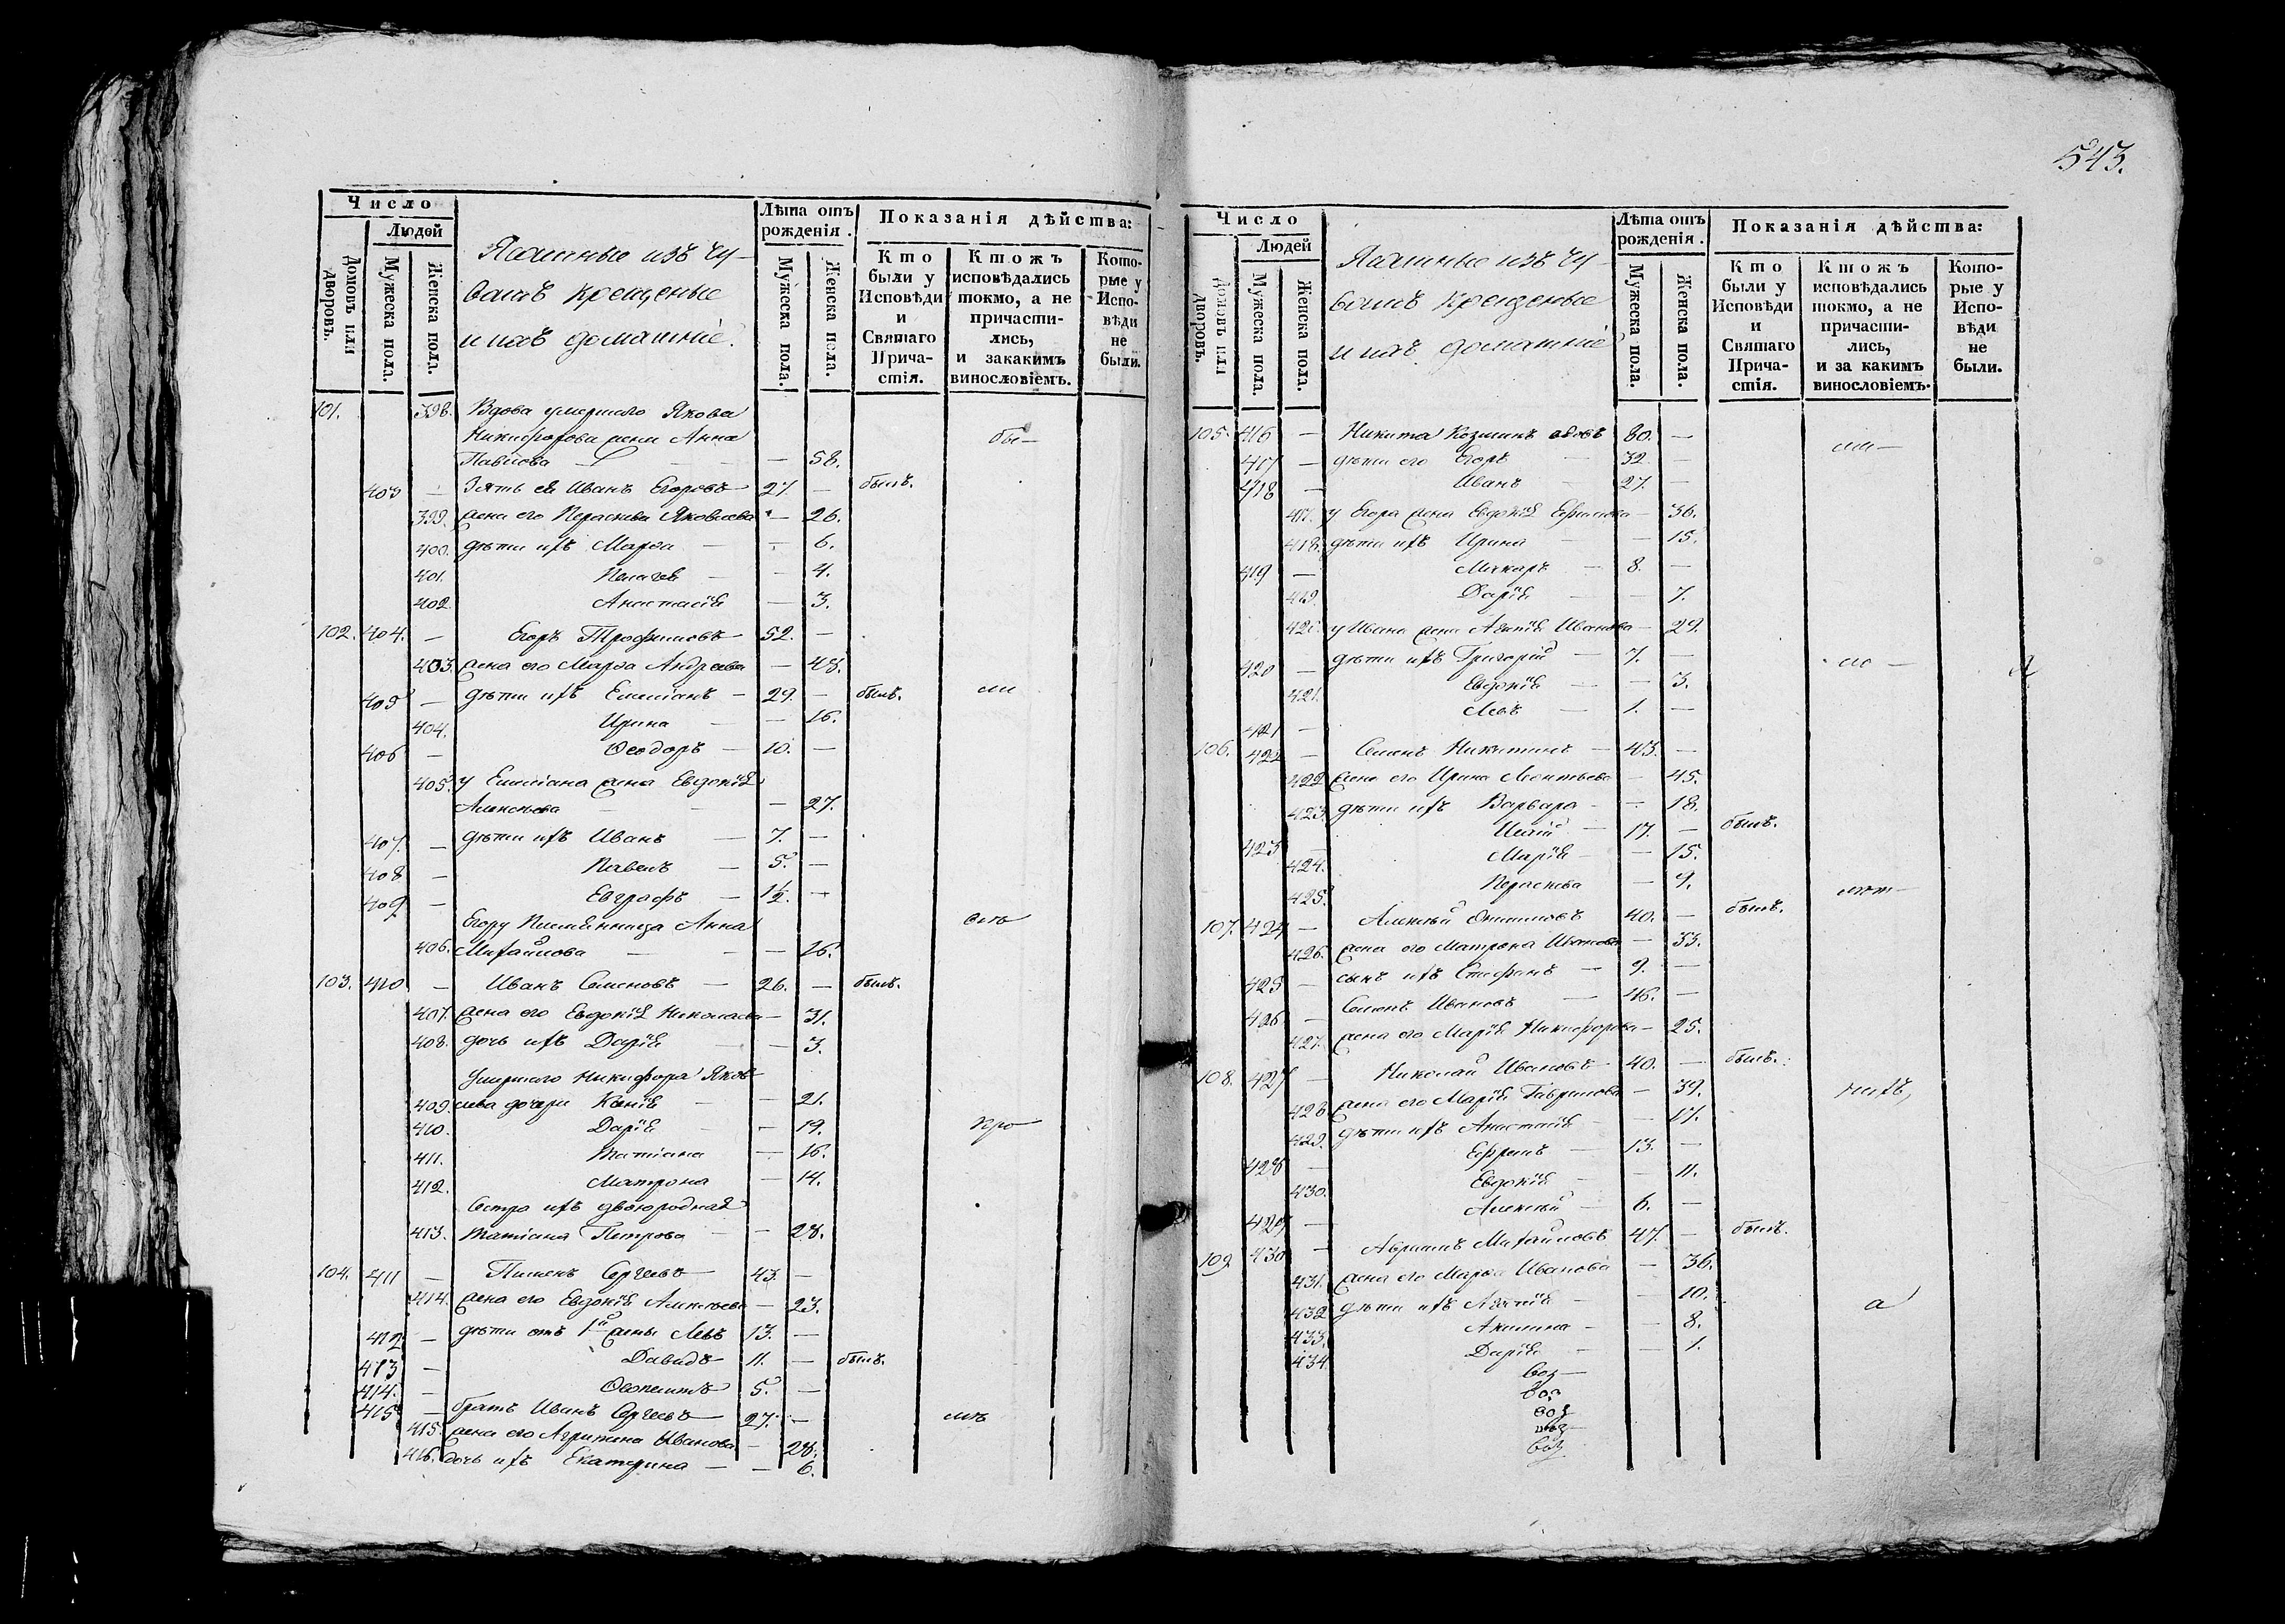 543.
Число
Людей
Домовъ или дворовъ.
Мужеска пола.
Женска пола.
Ясашные изъ чу-
вашъ крещеные
и ихъ домашніе.
Лѣта отъ рожденія.
Мужеска пола.
Женска пола.
Показанія дѣйства:
Кто были у Исповѣди и Святаго Причастія.
Ктожъ исповѣдались токмо, а не причастились, и закакимъ винословіемъ.
Которые у Исповѣди не были.
101. 398. Вдова умершаго Якова
Никифорова жена Анна бы-
Павлова — 58.
403 — Зять ея Иванъ Егоровъ 27. — былъ.
399. жена его Параскева Яковлева — 26.
400. дѣти ихъ Марѳа — 6.
401. Пелагея — 4.
402. Анастасія — 3.
102. 404. — Егоръ Трофимовъ 52. —
403. жена его Марѳа Андреева — 48.
405 — дѣти ихъ Емиліанъ 29. — былъ. ли
404. Ирина — 16.
406 — Ѳеодоръ 10. —
405. у Емиліана жена Евдокія
Алексѣева — 27.
407. — дѣти ихъ Иванъ 7. —
408 — Павелъ 5. —
409 — Евграфъ 1½. —
Егору племянница Анна
406. Михайлова — 16.
103. 410 — Иванъ Семеновъ 26. — былъ.
407. жена его Евдокія Николаева — 31.
408. дочь ихъ Дарія — 3.
Умершаго Никифора Яков-
409. лева дочери Ксенія — 21.
410. Дарія — 19. кро
411. Татіана — 16.
412. Матрона — 14.
Сестра ихъ двоюродная
413. Татіана Петрова — 28.
104. 411 — Пименъ Сергеевъ 43. —
414. жена его Евдокія Алексѣева — 23.
412 — дѣти отъ 1й жены Левъ 13. —
413 — Давидъ 11. — былъ.
414. — 5. —
415 — братъ Иванъ Сергеевъ 27. —
415. жена его Агрипина Иванова — 28.
416. дочь ихъ Екатерина — 6.
Число
Людей
Домовъ или дворовъ.
Мужеска пола.
Женска пола.
Ясашные изъ чу-
вашъ крещеные
и ихъ домашніе
Лѣта отъ рожденія.
Мужеска пола.
Женска пола.
Показанія дѣйства:
Кто были у Исповѣди и Святаго Причастія.
Ктожъ исповѣдались токмо, а не причастились, и за какимъ винословіемъ.
Которые у Исповѣди не были.
105. 416 — Никита Козминъ вдовъ 80. —
417 — дѣти его Егоръ 32. —
418 — Иванъ 27. —
417. у Егора жена Евдокія — 36.
418. дѣти ихъ Ирина — 15.
419 — Макаръ 8. —
419. Дарія — 7.
420. у Ивана жена Иванова — 29.
420 — дѣти ихъ Григорій 7. —
421. Евдокія — 3.
421 — Левъ 1. —
106. 422 — Семенъ Никитинъ 43. —
422 жена его Ирина Леонтьева — 45.
423. дѣти ихъ Варвара — 18.
423 — 17. — былъ.
424. Марія — 15.
425. Параскева — 9.
107. 424 — Алексѣй 40. — былъ.
426. жена его Матрона Иванова — 33.
425 — сынъ ихъ Стефанъ 9. —
426 — Семенъ Ивановъ 46. —
427. жена его Марія Никифорова — 25.
108. 427 — Николай Ивановъ 40. — былъ.
428 жена его Марія Гаврилова — 39.
429. дѣти ихъ Анастасія — 17.
428 — Ефремъ 13. —
430. Евдокія — 11.
429 — Алексѣй 6. —
109 430 — Абрамъ Михайловъ 47. — былъ.
431. жена его Марѳа Иванова — 36.
432 дѣти ихъ — 10. а
433. Акилина — 8.
434. Дарія — 1.